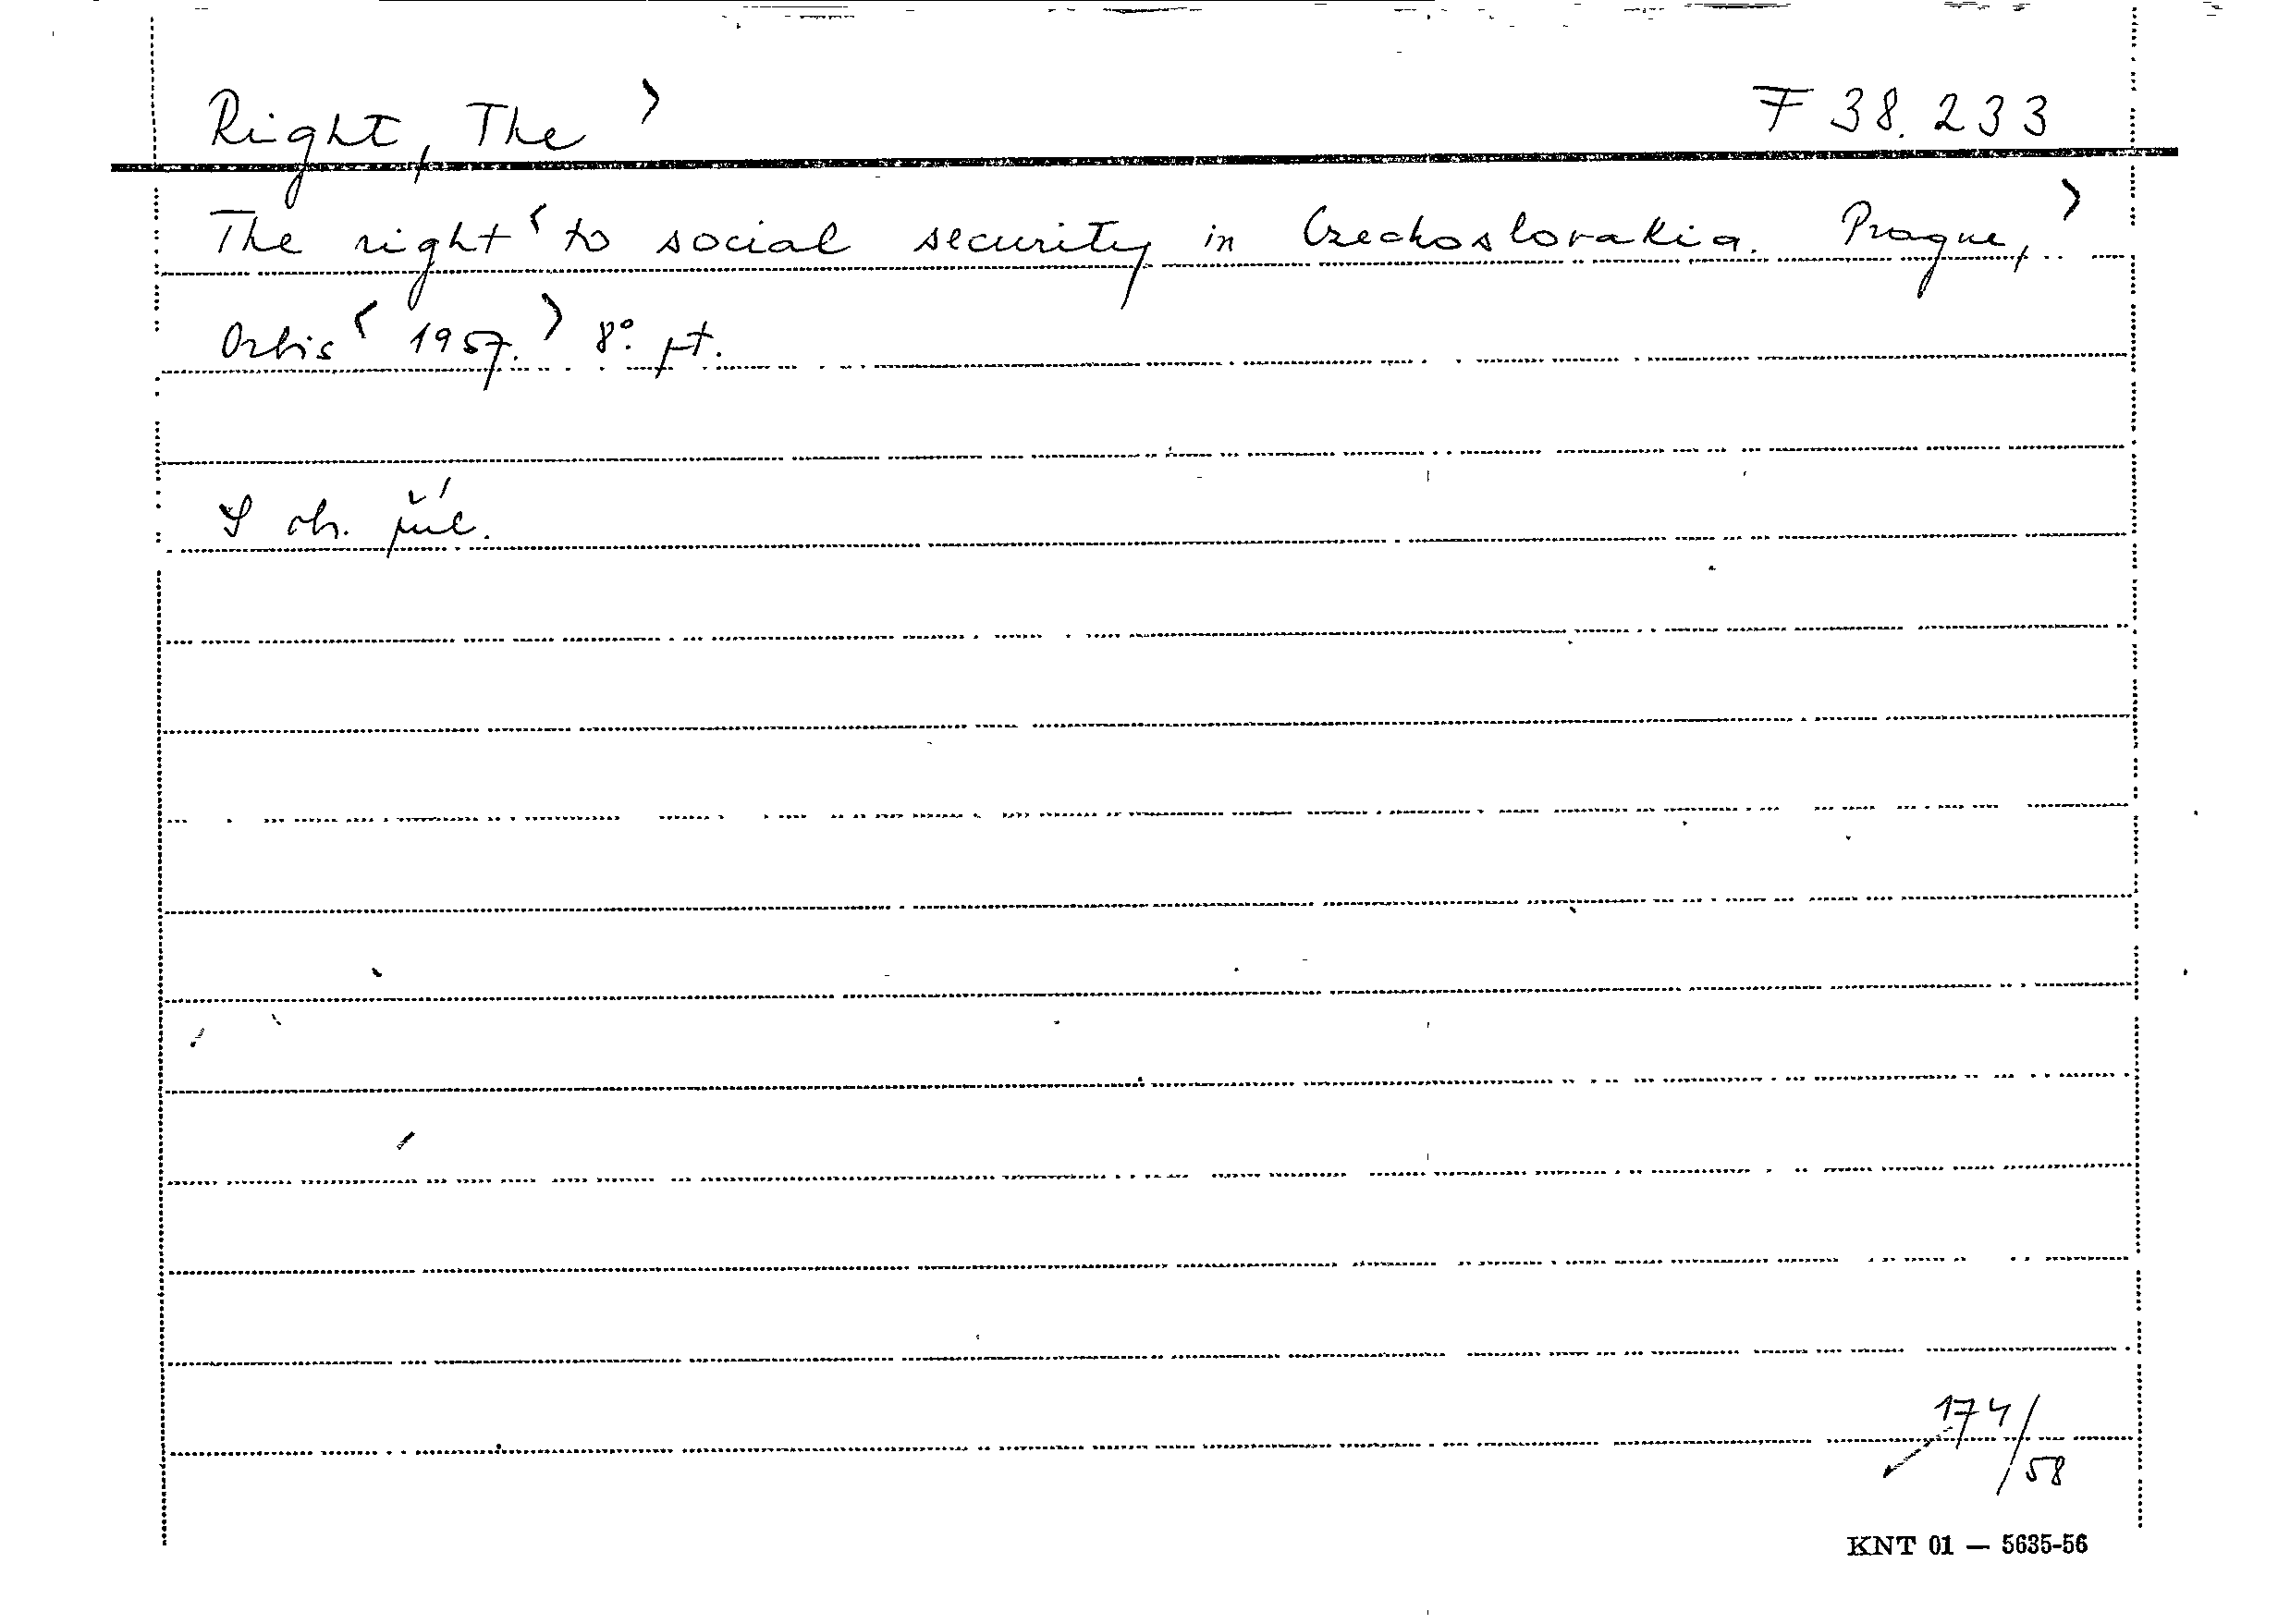 Right, The >
F 38.233
The right < to social security in Czechoslovakia. Prague, >
Orbis < 1957. > 8°. pt.
S ob. příl.
174/58
KNT 01 — 5635-56